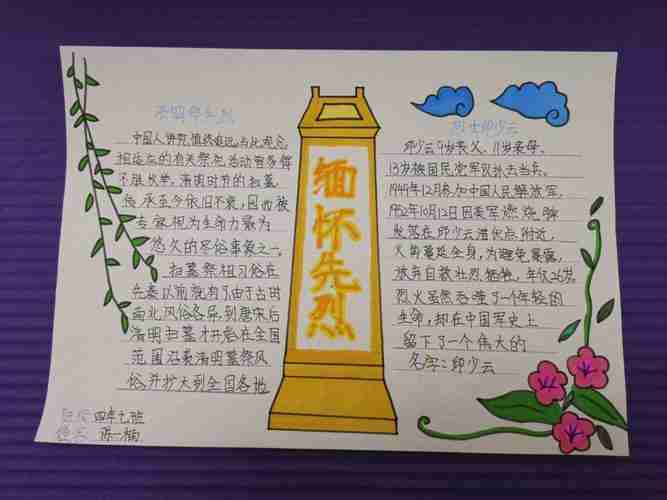 清明祭先烈
中国人讲究慎终追远，与此观念
相适应的有关祭祀活动曾多得
不胜枚举。清明时节的扫墓
传承至今依旧不衰，因而被
专家视为生命力最为
悠久的冬俗事象之一。
扫墓祭祖习俗在
先秦以前就有了，由于古时
南北风俗各异，到唐宋后
清明扫墓才开始在全国
范围沿袭清明墓祭风
俗，并扩大到全国各地
班级 四年七班
姓名
缅怀先烈
烈士邱少云
邱少云9岁丧父，11岁丧母。
13岁被国民党军队抓去当兵。
1949年12月参加中国人民解放军。
1952年10月12日因美军燃烧弹
火势蔓延全身，为避免暴露，
放弃自救壮烈牺牲，年仅26岁。
烈火虽然吞噬了一个年轻的
生命，却在中国军史上
留下了一个伟大的
名字：邱少云